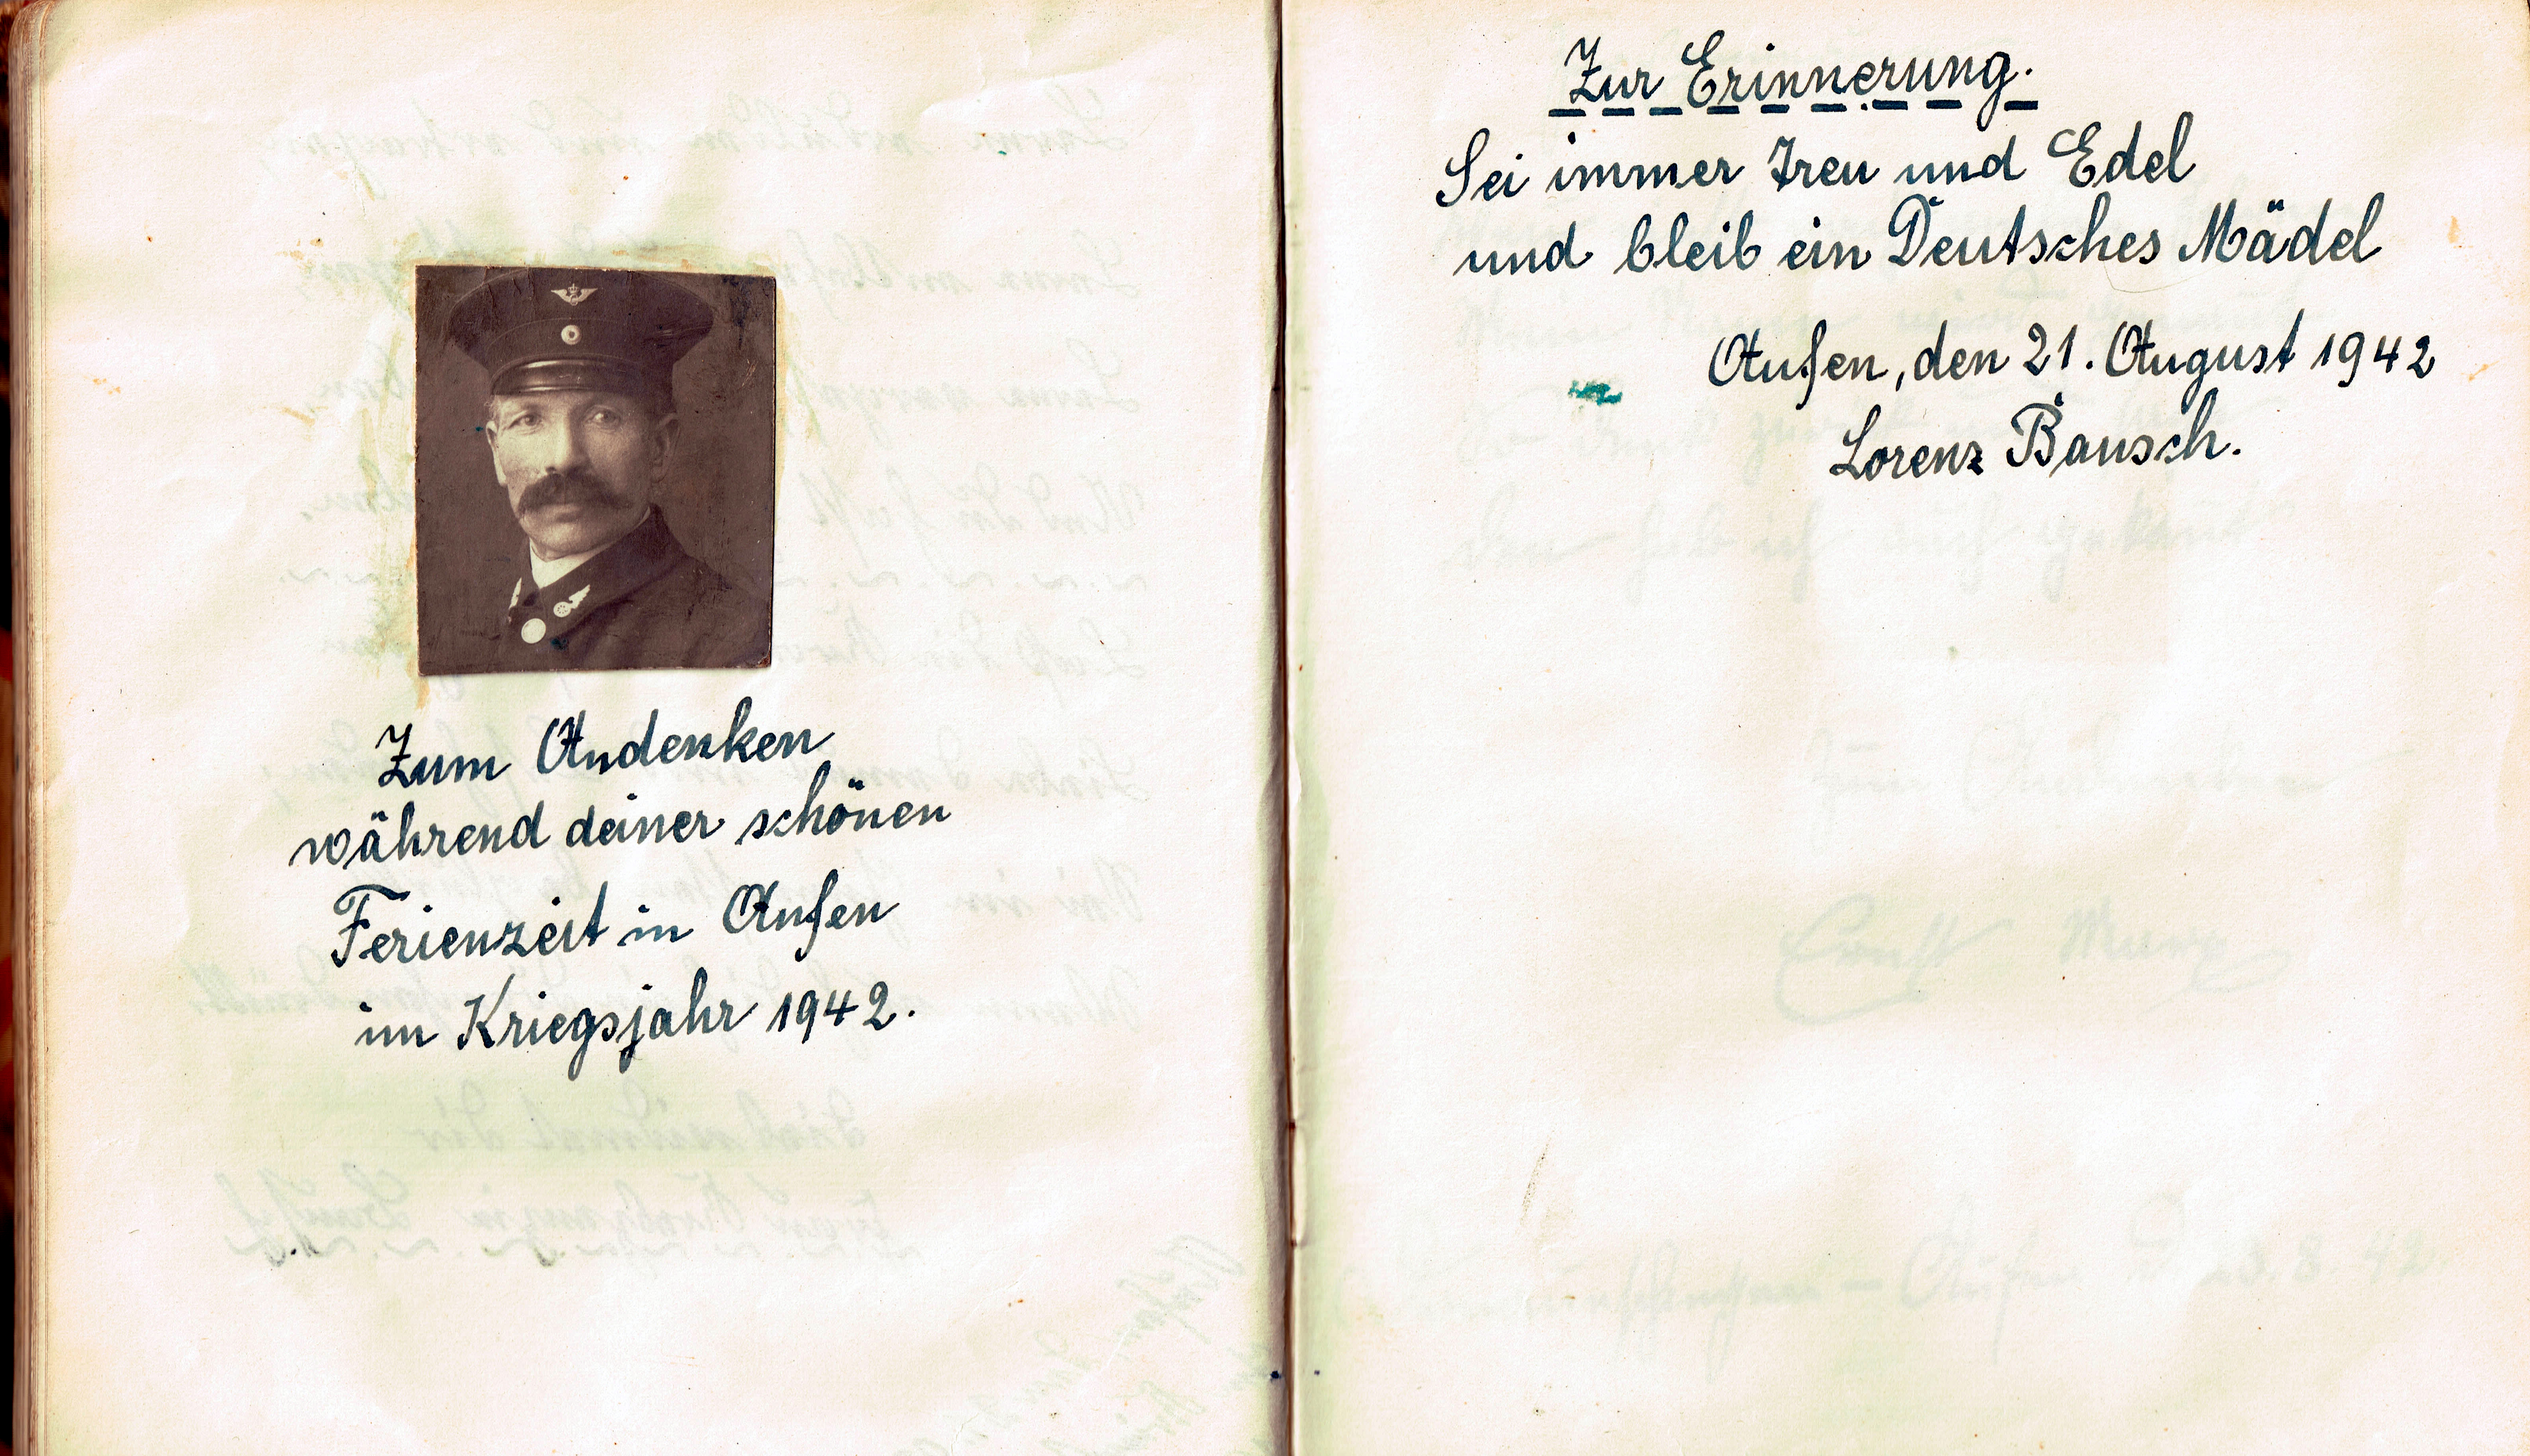 Zum Andenken
während deiner schönen
Ferienzeit in Aufen
im Kriegsjahr 1942.
Zur Erinnerung.
Sei immer Treu und Edel
und bleib ein Deutsches Mädel
Aufen, den 21. August 1942
Lorenz Bausch.